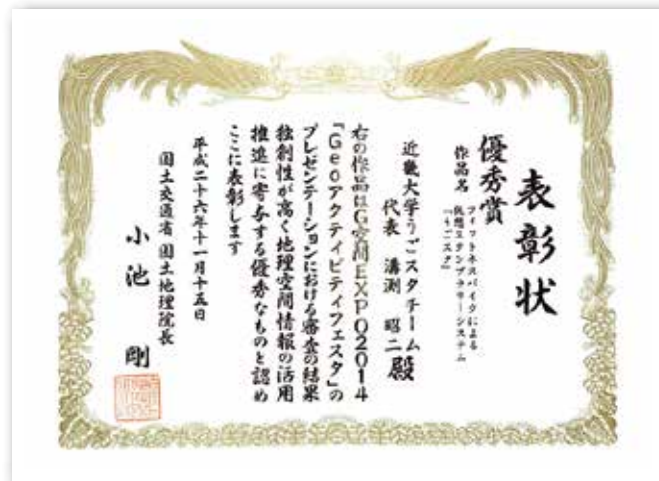 表彰状
優秀賞
作品名
フィットネスバイクによる
仮想スタンプラリーシステム
「うごスタ」
近畿大学うごスタチーム
代表 溝渕 昭二 殿
右の作品はG空間EXPO2014
「Geoアクティビティフェスタ」の
プレゼンテーションにおける審査の結果
独創性が高く地理空間情報の活用
推進に寄与する優秀なものと認め
ここに表彰します
平成二十六年十一月十五日
国土交通省 国土地理院長
小池 剛